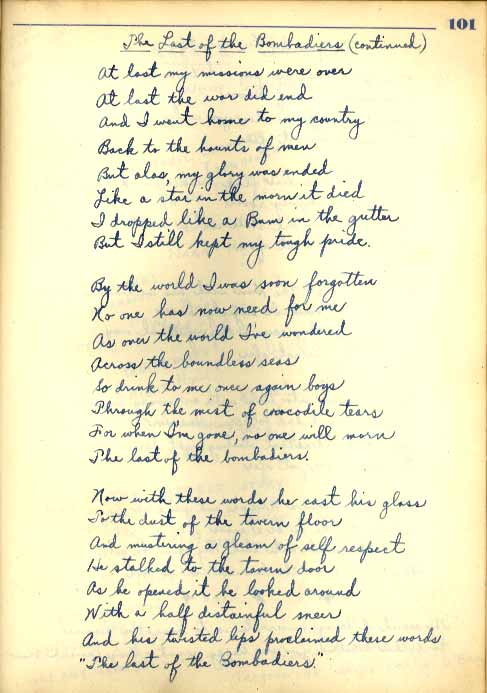 101
The Last of the Bombadiers (continued)
At last my missions were over
At last the war did end
And I went home to my country
Back to the haunts of men
But alas, my glory was ended
Like a star in the morn it died
I dropped like a Bum in the gutter
But I still kept my tough pride.
By the world I was soon forgotten
No one has now need for me
As over the world I've wondered
Across the boundless seas
So drink to me once again boys
Through the mist of crocodile tears
For when I'm gone, no one will morn
The last of the bombadiers.
Now with these words he cast his glass
To the dust of the tavern floor
And mustering a gleam of self respect
He stalked to the tavern door
As he opened it he looked around
With a half distainful sneer
And his twisted lips proclaimed these words
"The last of the Bombadiers."